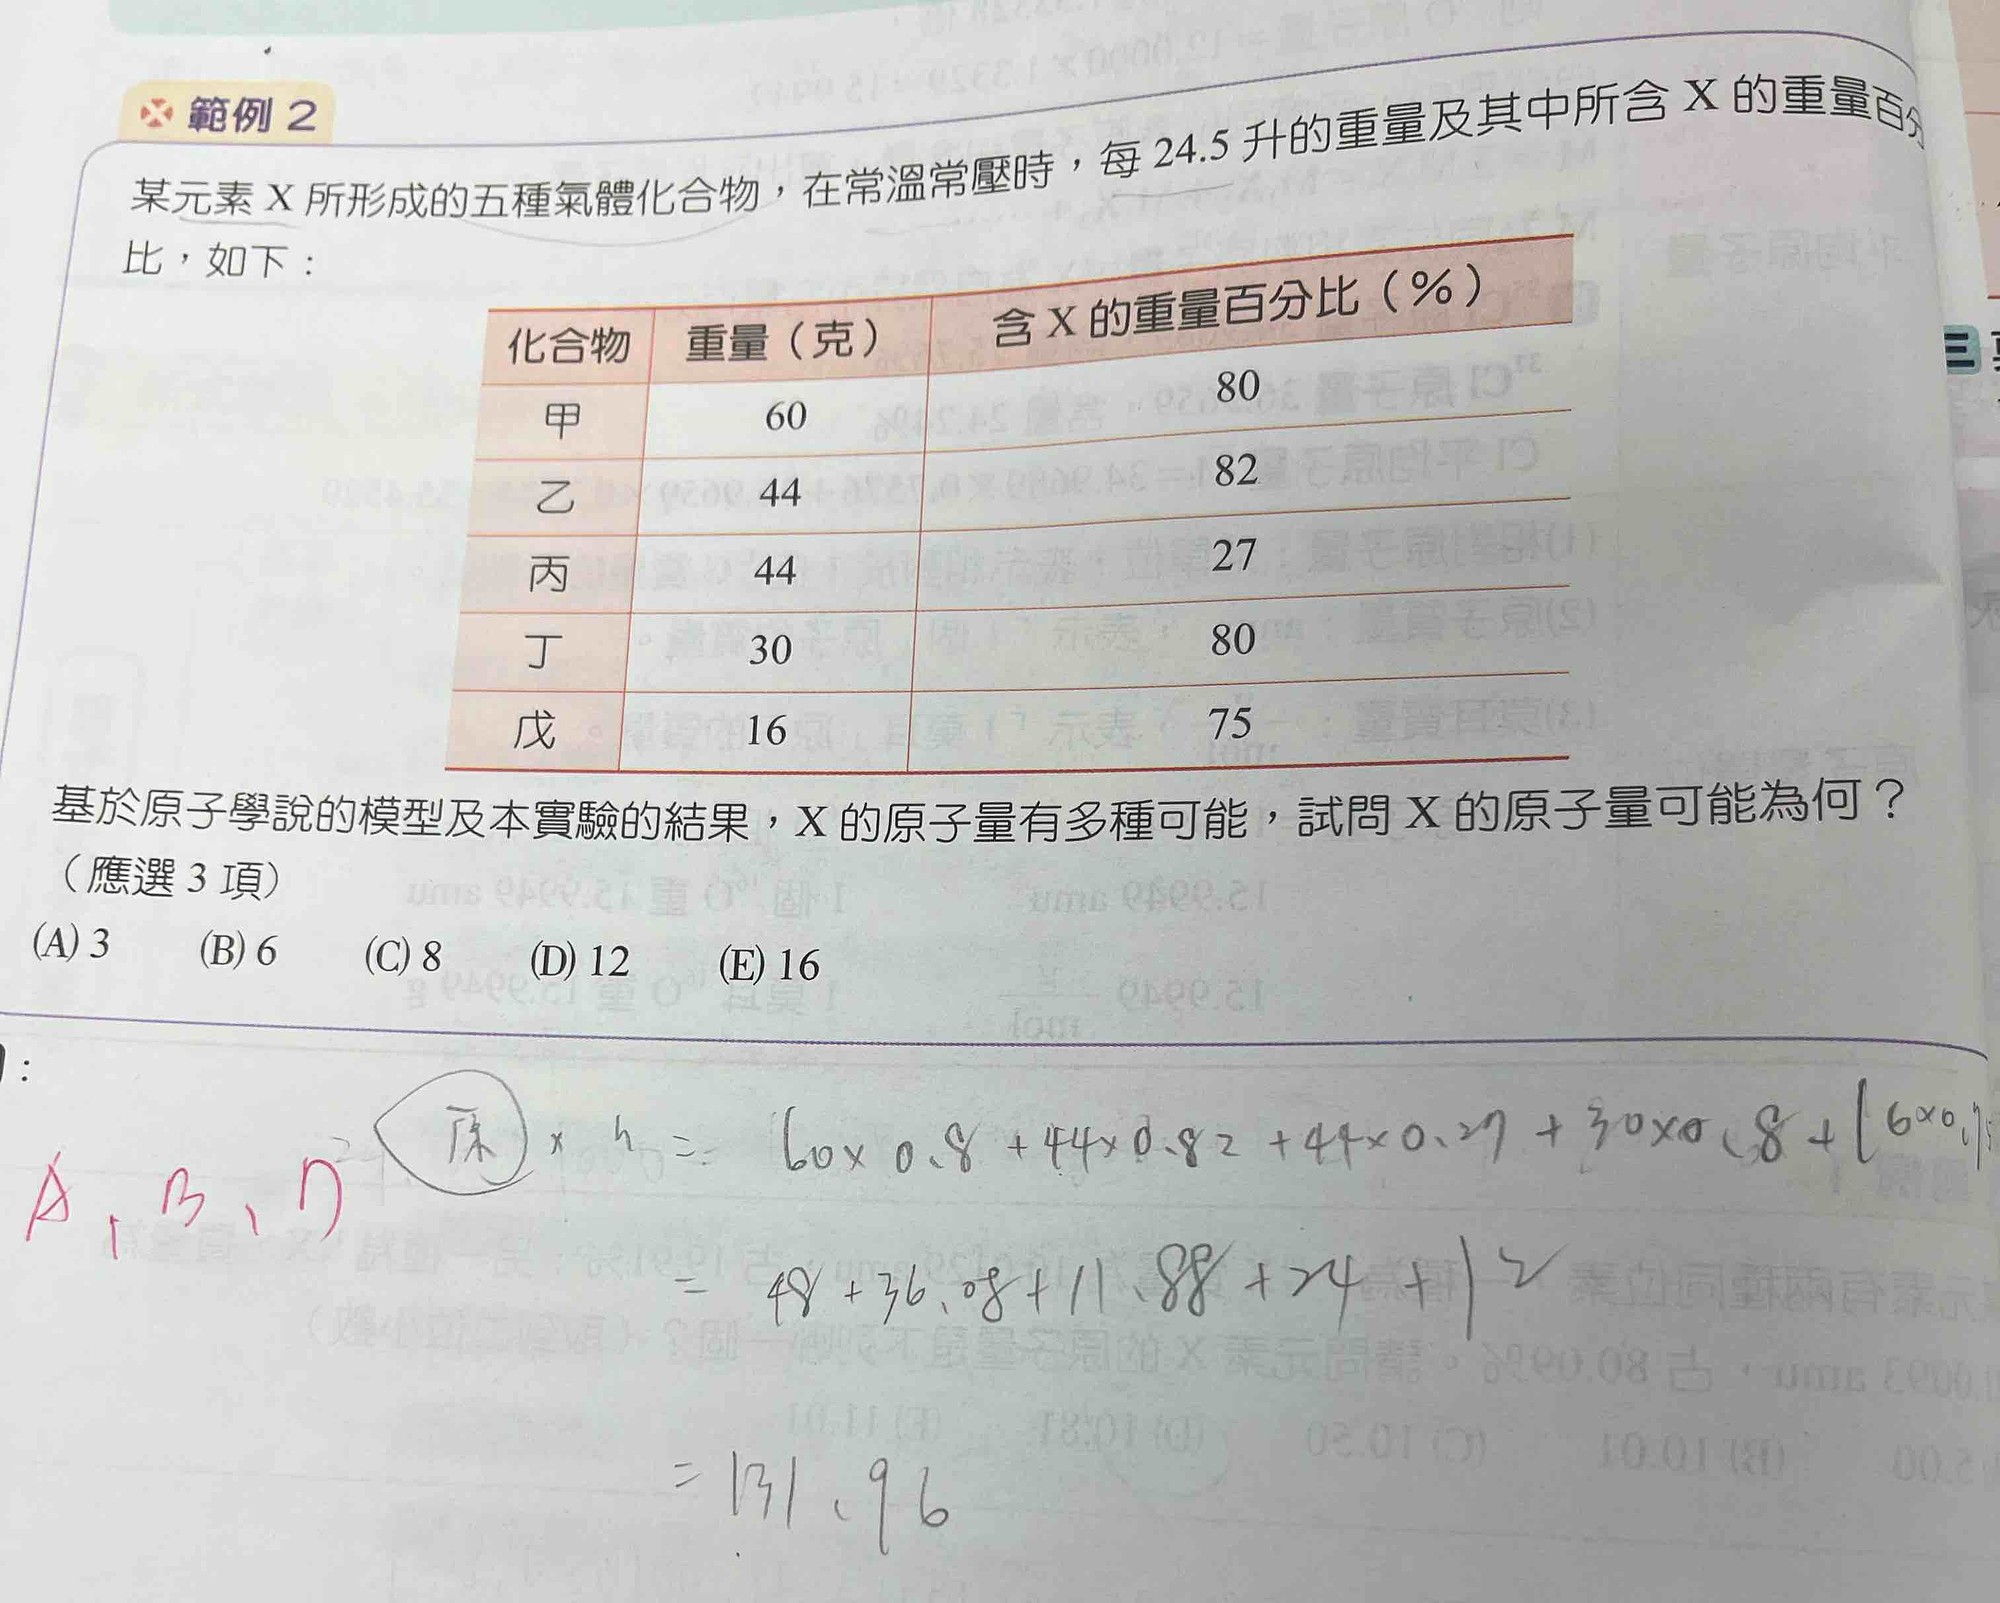 範例 2
某元素 X 所形成的五種氣體化合物，在常溫常壓時，每 24.5 升的重量及其中所含 X 的重量百分
比，如下：
化合物 重量（克） 含 X 的重量百分比（%）
甲 60 80
乙 44 82
丙 44 27
丁 30 80
戊 16 75
基於原子學說的模型及本實驗的結果，X 的原子量有多種可能，試問 X 的原子量可能為何？
（應選 3 項）
(A) 3 (B) 6 (C) 8 (D) 12 (E) 16
三
:
原 × n = 60×0.8 + 44×0.82 + 44×0.27 + 30×0.8 + 16×0.75
A、B、D
= 48 + 36.08 + 11.88 + 24 + 12
= 131.96